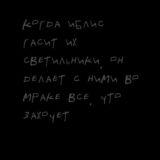 КОГДА ИБЛИС
ГАСИТ ИХ
СВЕТИЛЬНИКИ, ОН
ДЕЛАЕТ С НИМИ ВО
МРАКЕ ВСЕ, ЧТО
ЗАХОЧЕТ